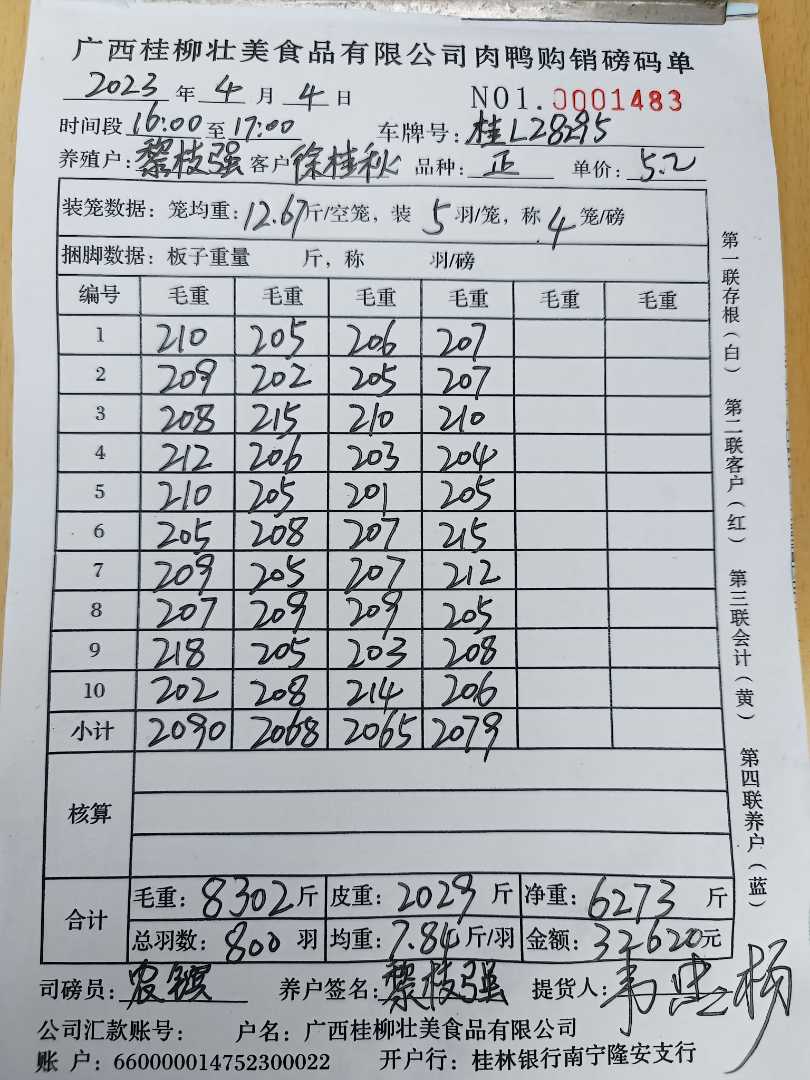 广西桂柳壮美食品有限公司肉鸭购销磅码单
2023 年 4 月 4 日 NO1. 0001483
时间段 16:00 至 17:00 车牌号: 桂L28295
养殖户: 黎枝强 客户 徐桂秋 品种: 正 单价: 5.2
装笼数据: 笼均重: 12.67斤/空笼, 装 5 羽/笼, 称 4 笼/磅
捆脚数据: 板子重量 斤, 称 羽/磅
编号 毛重 毛重 毛重 毛重 毛重 毛重
1 210 205 206 207
2 209 202 205 207
3 208 215 210 210
4 212 206 203 204
5 210 205 201 205
6 205 208 207 215
7 209 205 207 212
8 207 209 209 205
9 218 205 203 208
10 202 208 214 206
小计 2090 2068 2065 2079
核算
合计
毛重: 8302 斤 皮重: 2029 斤 净重: 6273 斤
总羽数: 800 羽 均重: 7.84 斤/羽 金额: 32620 元
司磅员: 农 养户签名: 黎枝强 提货人: 韦忠杨
公司汇款账号: 户名: 广西桂柳壮美食品有限公司
账 户: 660000014752300022 开户行: 桂林银行南宁隆安支行
第一联存根(白)
第二联客户(红)
第三联会计(黄)
第四联养户(蓝)